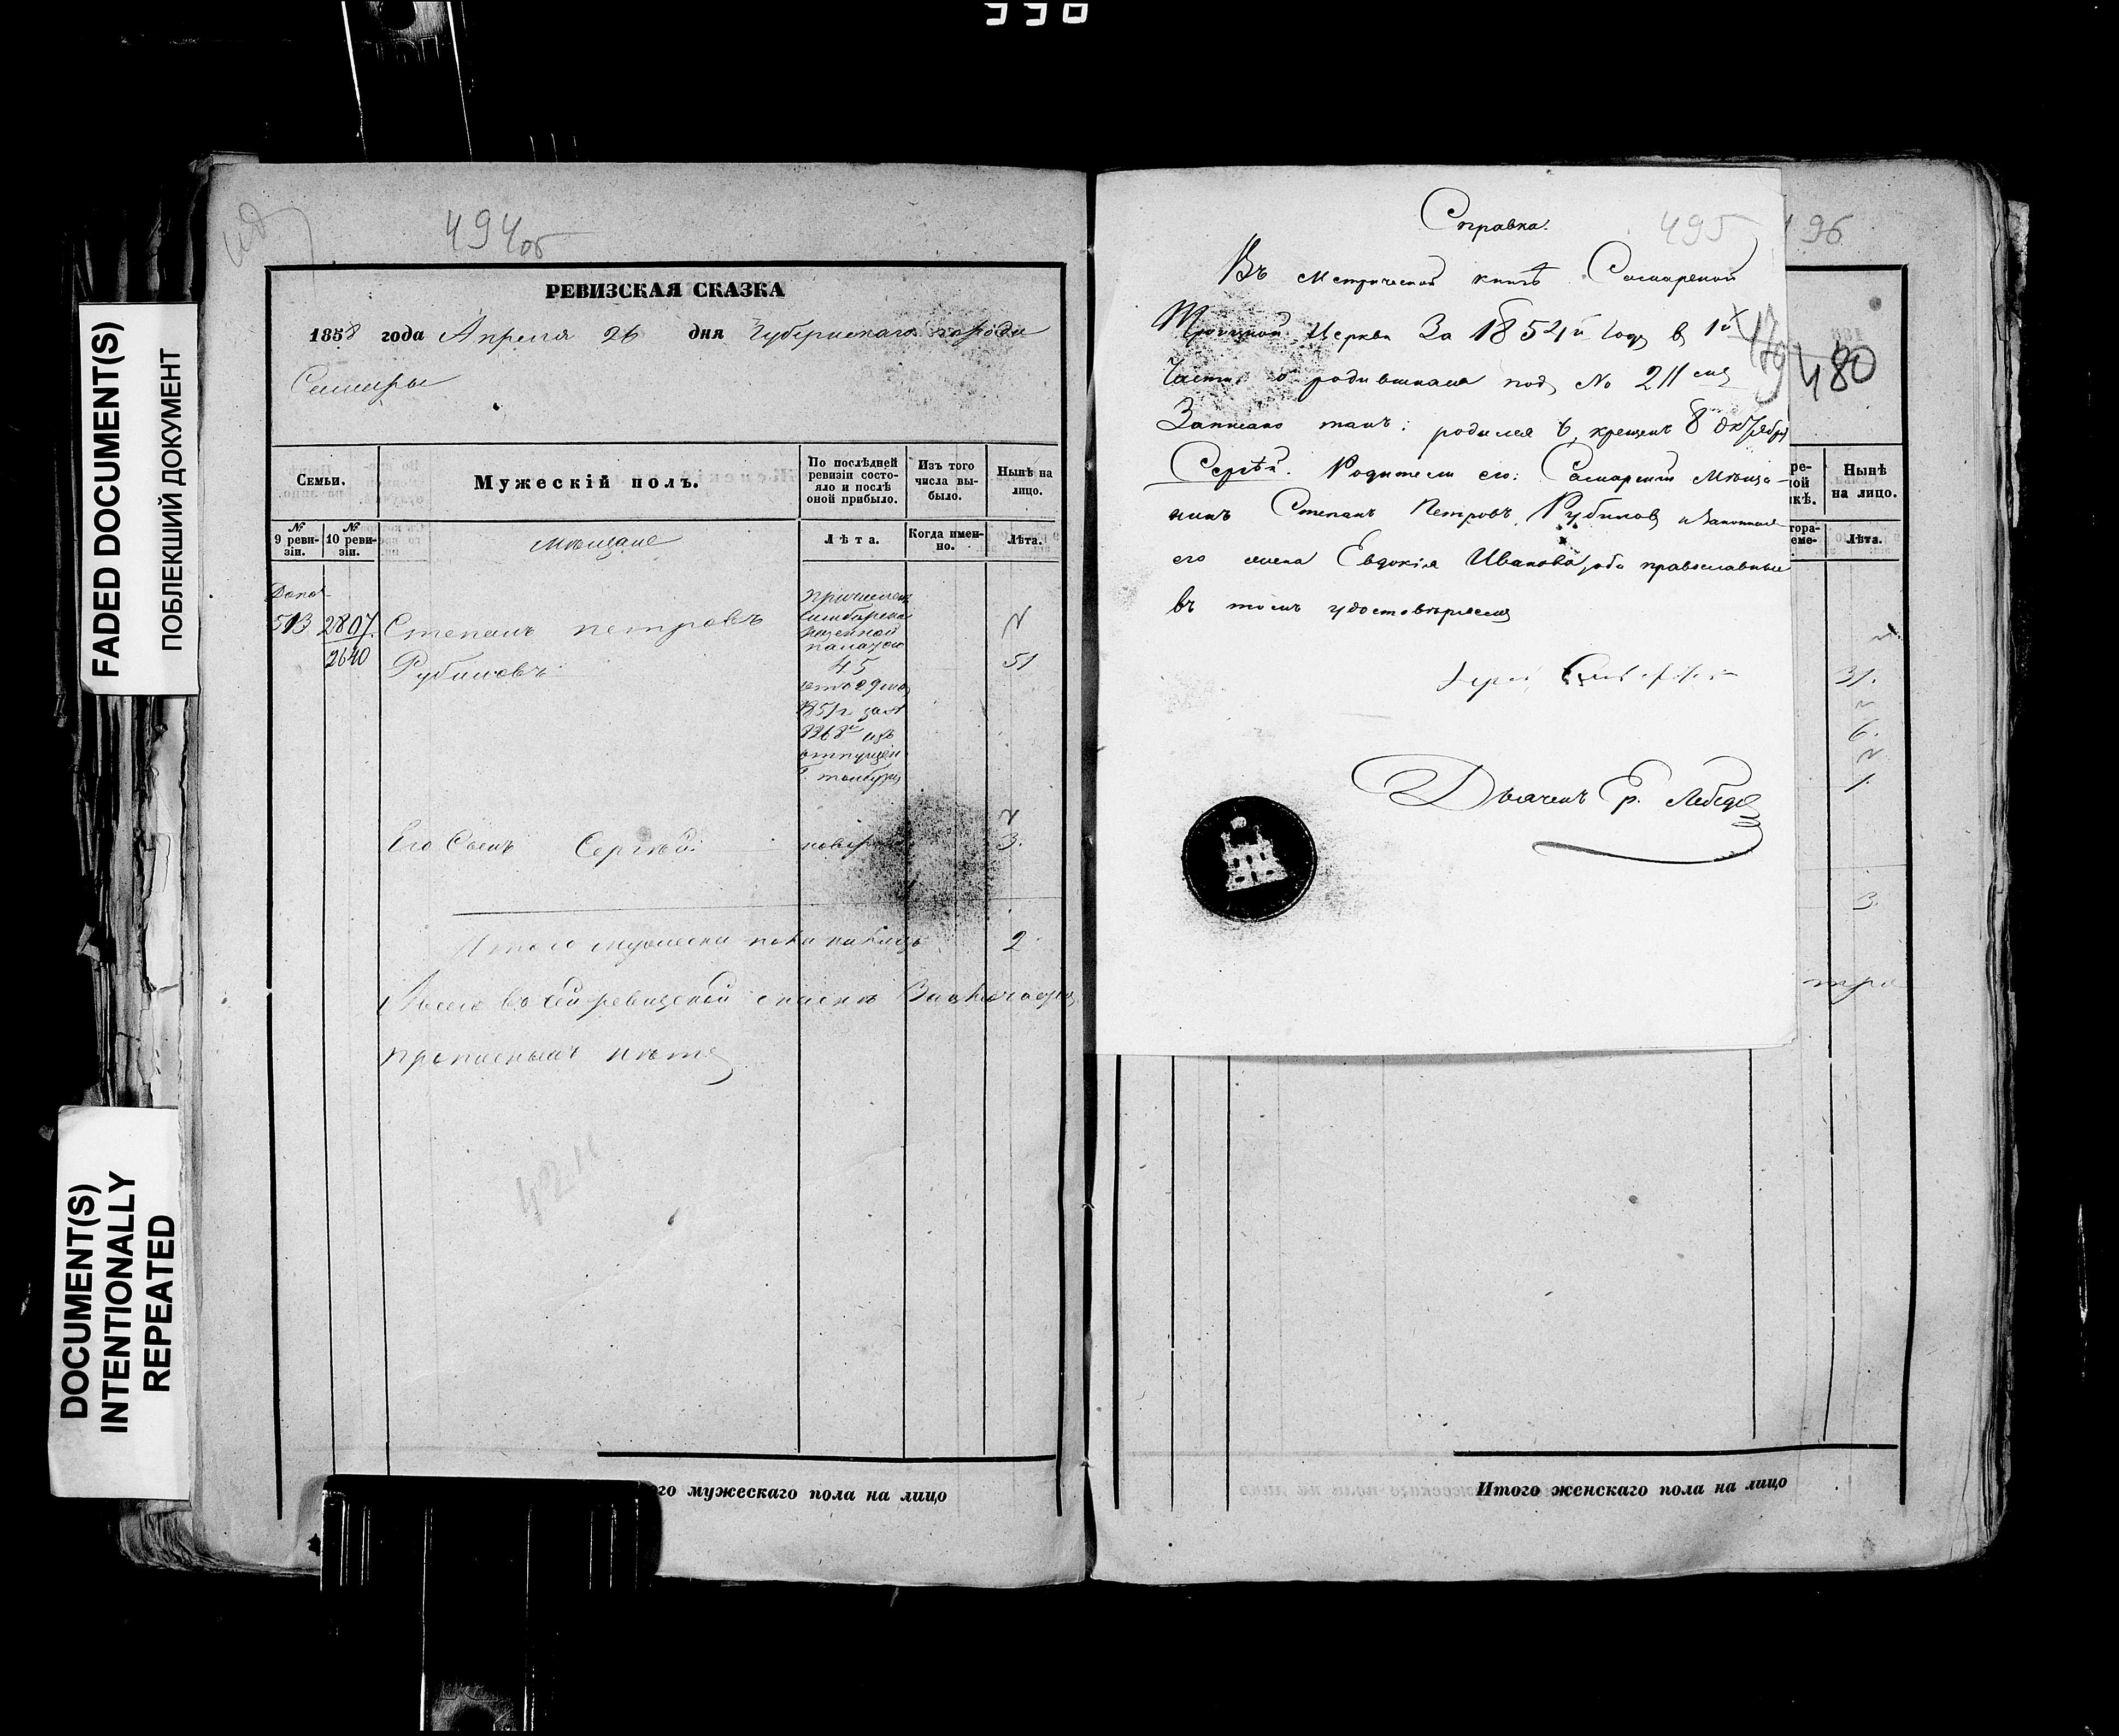 330
FADED DOCUMENT(S)
ПОБЛЕКШИЙ ДОКУМЕНТ
DOCUMENT(S)
INTENTIONALLY
REPEATED
494об
РЕВИЗСКАЯ СКАЗКА
1858 года Апреля 26 дня Губернскаго города
Самары
Семьи.
Мужескій полъ.
По послѣдней ревизіи состояло и послѣ оной прибыло.
Изъ того числа выбыло.
Нынѣ на лицо.
№ 9 ревизіи.
№ 10 ревизіи.
мѣщане
Лѣта.
Когда именно.
Лѣта.
513 2807 Степанъ петровъ
2640 Рубиновъ
причислен
симбирской
казенной
палатой
45
51
Его Сынъ Сергѣй
3.
Итого мужеска пола на лицо 2
пропис­ныхъ нѣтъ
го мужескаго пола на лицо
Справка.
495
Въ метрической книгѣ Самарской
Троицкой Церкви За 1854й Годъ в 1й
Части о родившихся под № 211 съ
Записано такъ: родился 6, крещенъ 8 октября
Сергѣй. Родители его: Самарскій Мѣща-
нинъ Степанъ Петровъ Рубинов и законная
его жена Евдокія Иванова, оба православные
въ томъ удостовѣряемъ
Дьячекъ Ер. Лебедев
496
479
480
Нынѣ на лицо.
Лѣта.
31.
6.
1.
3
три
Итого женскаго пола на лицо